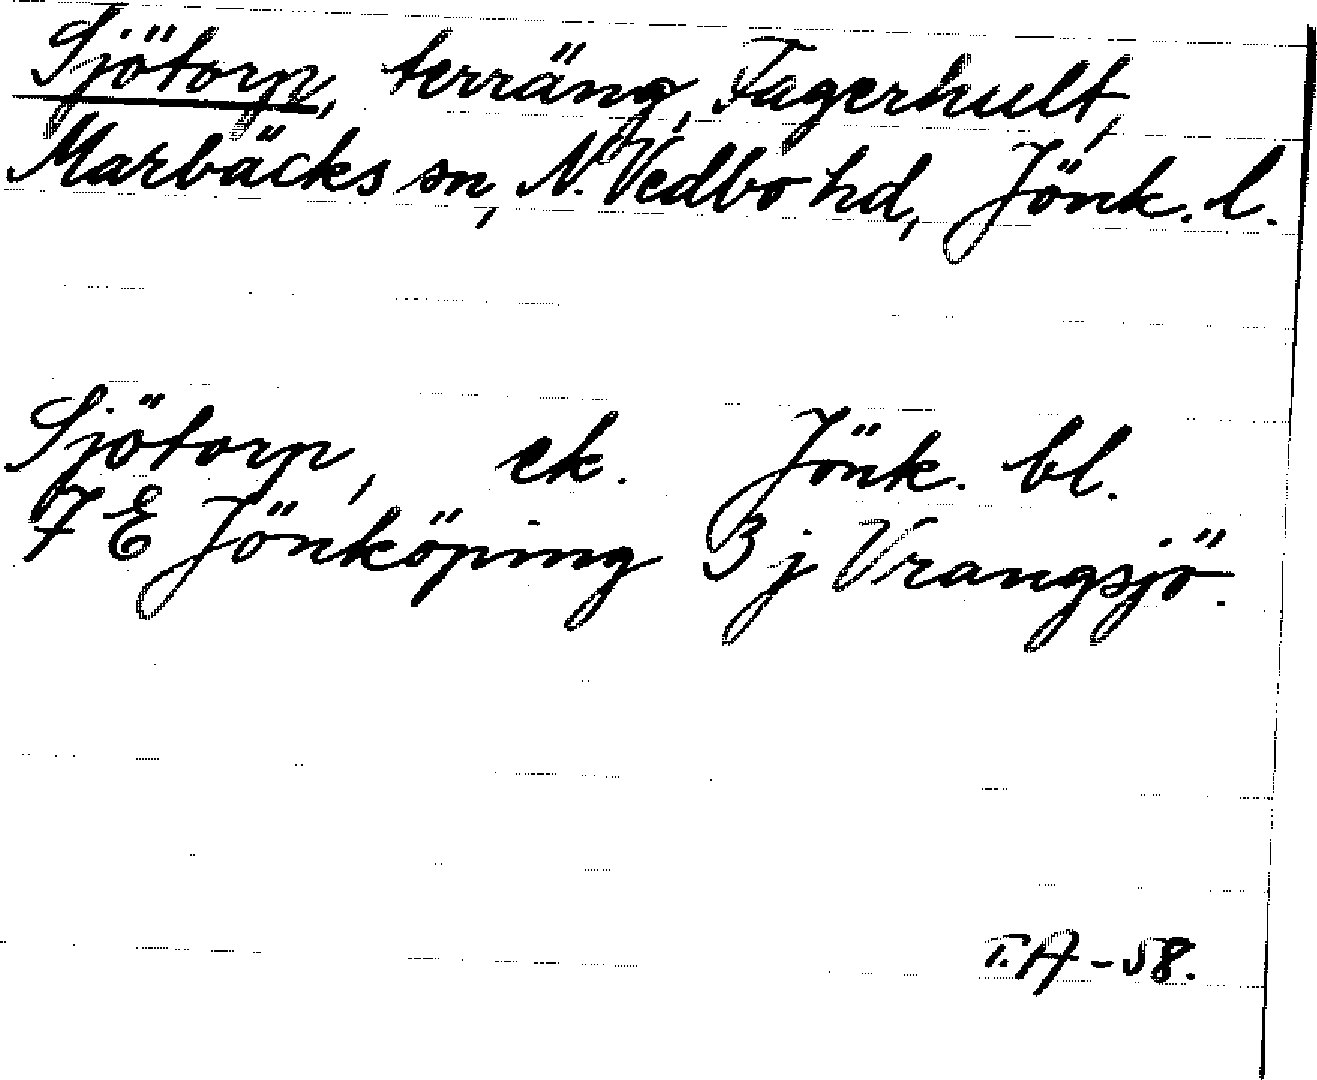 Sjötorp, terräng, Fagerhult,
Marbäcks sn, N. Vedbo hd, Jönk. l.
Sjötorp, ek. Jönk. bl.
7 E Jönköping 3 j Vrangsjö.
T.A -58.